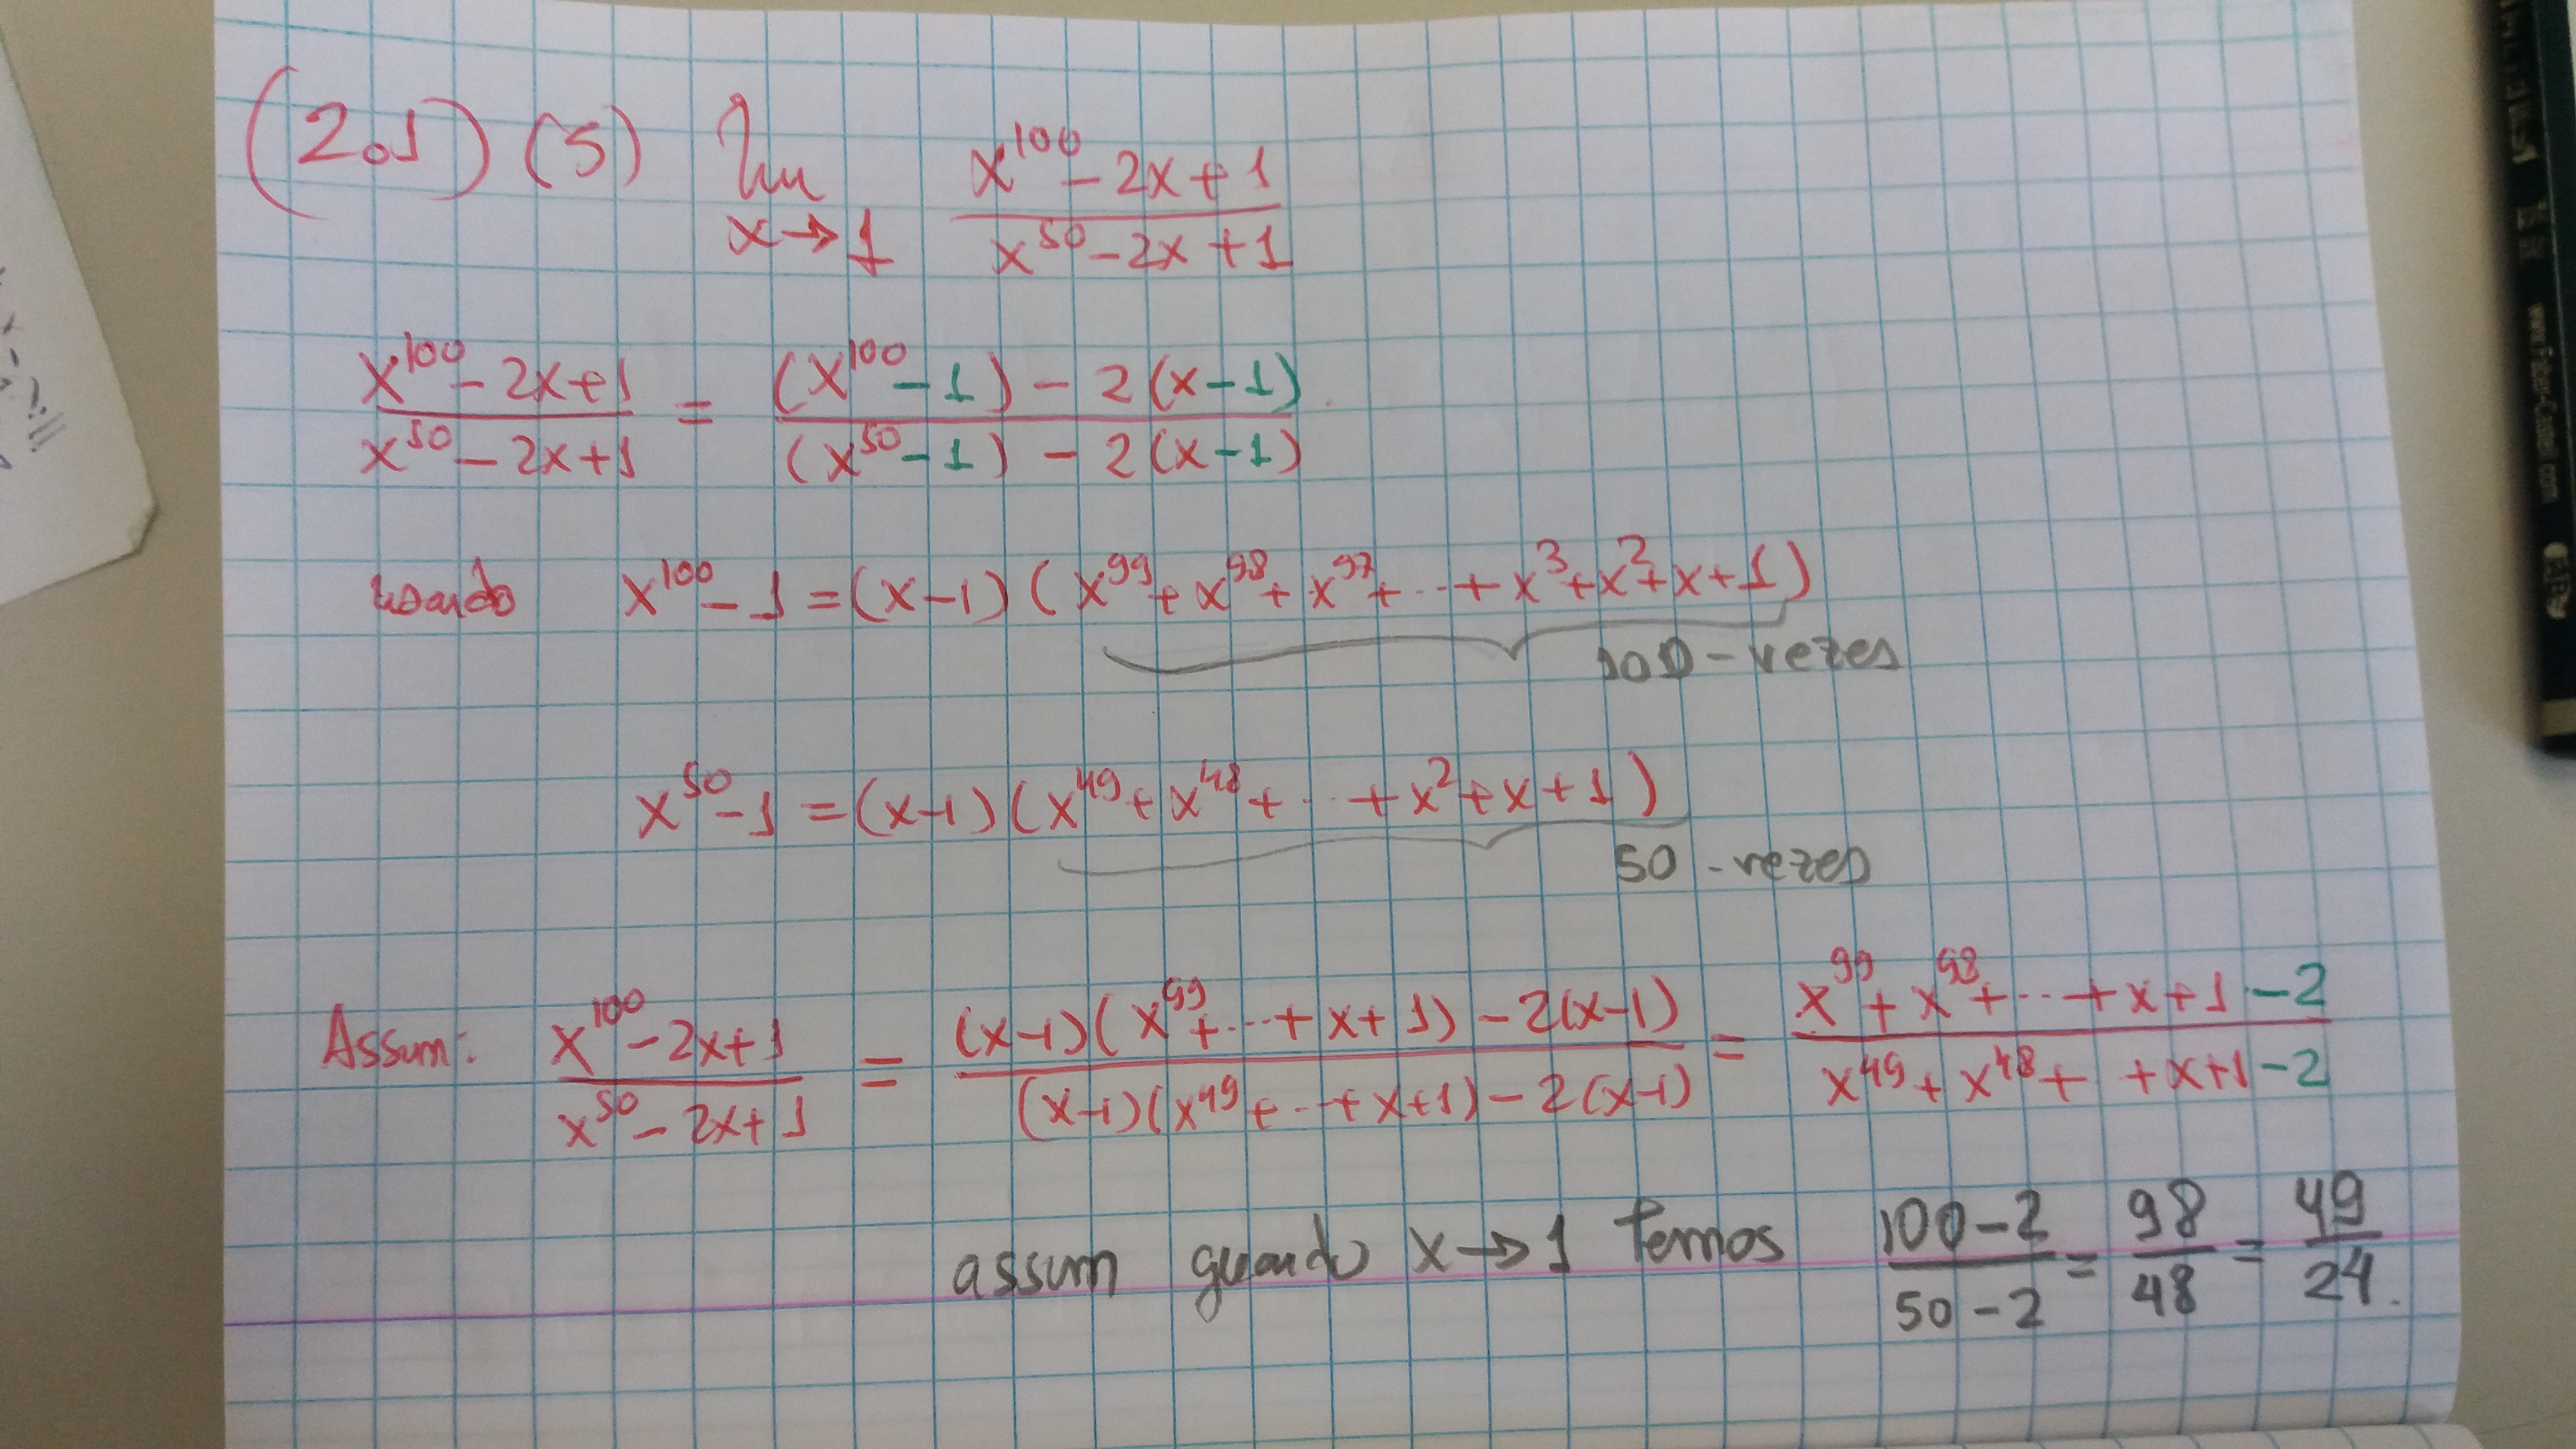 (2.1) (5) lim x→1 (x^100 - 2x + 1)/(x^50 - 2x + 1)
(x^100 - 2x + 1)/(x^50 - 2x + 1) = ((x^100 - 1) - 2(x - 1))/((x^50 - 1) - 2(x - 1))
usando x^100 - 1 = (x-1)(x^99 + x^98 + x^97 + ... + x^3 + x^2 + x + 1)
100 - vezes
x^50 - 1 = (x-1)(x^49 + x^48 + ... + x^2 + x + 1)
50 - vezes
Assim: (x^100 - 2x + 1)/(x^50 - 2x + 1) = ((x-1)(x^99 + ... + x + 1) - 2(x-1))/((x-1)(x^49 + ... + x + 1) - 2(x-1)) = (x^99 + x^98 + ... + x + 1 - 2)/(x^49 + x^48 + + x + 1 - 2)
assim quando x→1 temos (100 - 2)/(50 - 2) = 98/48 = 49/24.